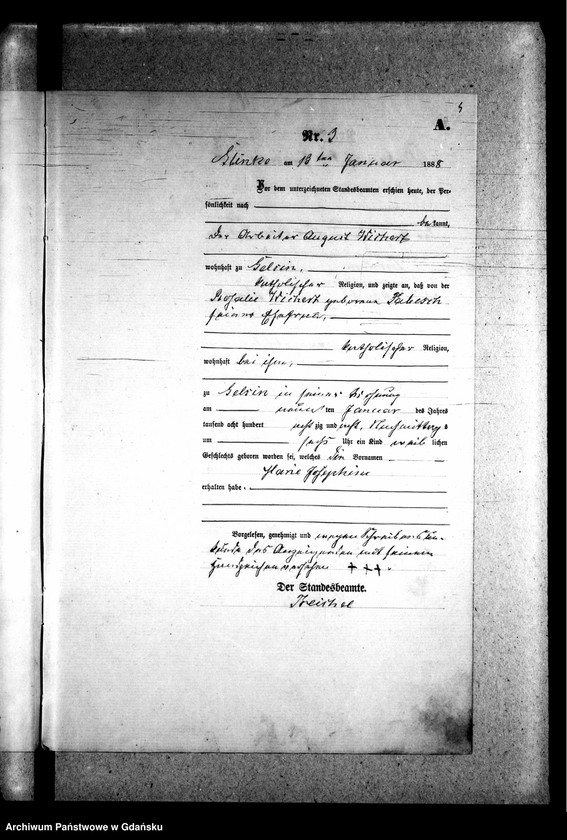 5
A.
Nr. 3
Glinke am 13ten Januar 1888
Vor dem unterzeichneten Standesbeamten erschien heute, der Per-
sönlichkeit nach
be kannt,
der Arbeiter August Wichert
wohnhaft zu
katholischer Religion, und zeigte an, daß von der
Rosalie Wichert geborene
seiner Ehefrau,
katholischer Religion,
wohnhaft bei ihm,
zu in seiner Wohnung
am neun ten Januar des Jahres
tausend acht hundert acht zig und acht, Nachmittags
um sechs Uhr ein Kind weib lichen
Geschlechts geboren worden sei, welches den Vornamen
Marie Josephine
erhalten habe.
Vorgelesen, genehmigt und wegen Schreibensun-
kunde des Anzeigenden mit seinem
Handzeichen versehen +++.
Der Standesbeamte.
Archiwum Państwowe w Gdańsku